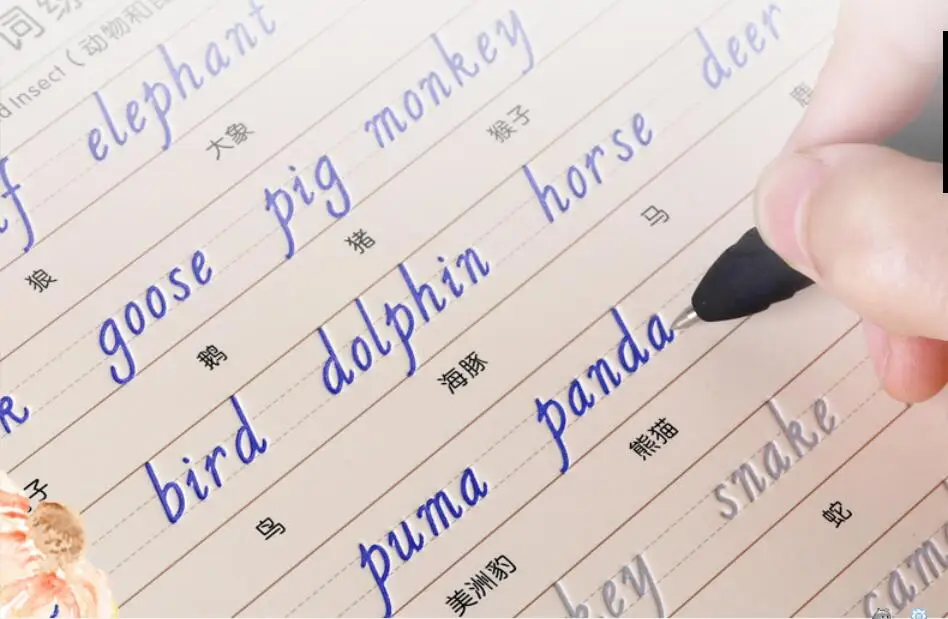 词
Insect（动物和
elephant
狼 大象
goose pig monkey
鹅 猪 猴子
bird dolphin horse deer
子 鸟 海豚 马 鹿
puma panda
美洲豹 熊猫
key snake
蛇
cam